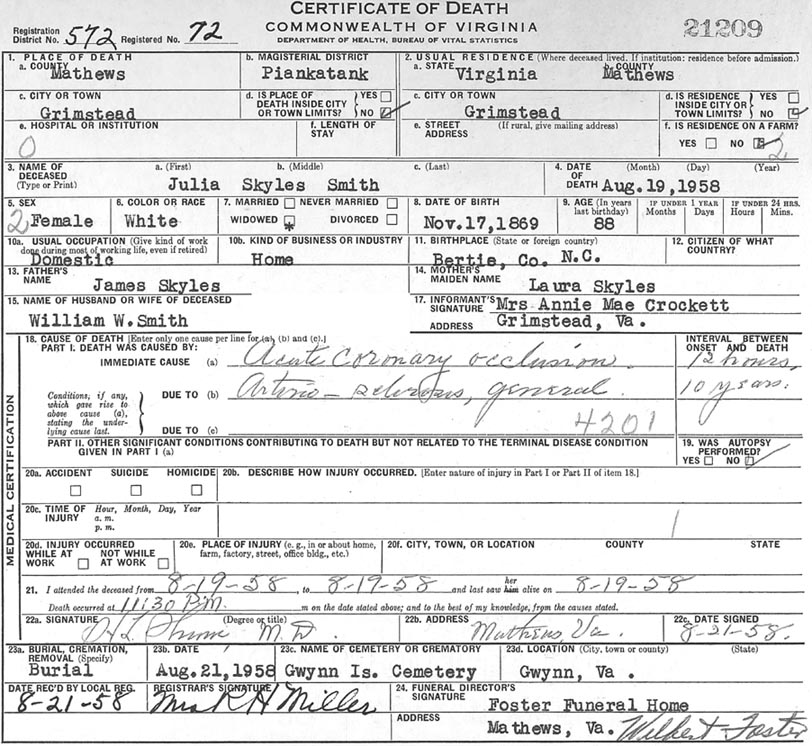 CERTIFICATE OF DEATH
COMMONWEALTH OF VIRGINIA
DEPARTMENT OF HEALTH, BUREAU OF VITAL STATISTICS
21209
Registration District No. 572 Registered No. 72
1. PLACE OF DEATH
a. COUNTY Mathews
b. MAGISTERIAL DISTRICT Piankatank
2. USUAL RESIDENCE (Where deceased lived. If institution: residence before admission.)
a. STATE Virginia
b. COUNTY Mathews
c. CITY OR TOWN Grimstead
d. IS PLACE OF DEATH INSIDE CITY OR TOWN LIMITS? YES NO
c. CITY OR TOWN Grimstead
d. IS RESIDENCE INSIDE CITY OR TOWN LIMITS? YES NO
e. HOSPITAL OR INSTITUTION 0
f. LENGTH OF STAY
e. STREET ADDRESS (If rural, give mailing address)
f. IS RESIDENCE ON A FARM? YES NO 2
3. NAME OF DECEASED (Type or Print)
a. (First) b. (Middle) c. (Last)
Julia Skyles Smith
4. DATE OF DEATH (Month) (Day) (Year)
Aug.19,1958
5. SEX 2 Female
6. COLOR OR RACE White
7. MARRIED NEVER MARRIED
WIDOWED * DIVORCED
8. DATE OF BIRTH Nov.17,1869
9. AGE (In years last birthday) 88
IF UNDER 1 YEAR Months Days
IF UNDER 24 HRS. Hours Mins.
10a. USUAL OCCUPATION (Give kind of work done during most of working life, even if retired) Domestic
10b. KIND OF BUSINESS OR INDUSTRY Home
11. BIRTHPLACE (State or foreign country) Bertie, Co. N.C.
12. CITIZEN OF WHAT COUNTRY?
13. FATHER'S NAME James Skyles
14. MOTHER'S MAIDEN NAME Laura Skyles
15. NAME OF HUSBAND OR WIFE OF DECEASED William W.Smith
17. INFORMANT'S SIGNATURE Mrs Annie Mae Crockett
ADDRESS Grimstead, Va.
MEDICAL CERTIFICATION
18. CAUSE OF DEATH [Enter only one cause per line for (a), (b) and (c).]
PART I. DEATH WAS CAUSED BY:
INTERVAL BETWEEN ONSET AND DEATH
IMMEDIATE CAUSE (a) Acute coronary occlusion. 12 hours.
Conditions, if any, which gave rise to above cause (a), stating the underlying cause last.
DUE TO (b) Arterio-sclerosis, general. 10 years.
DUE TO (c) 4201
PART II. OTHER SIGNIFICANT CONDITIONS CONTRIBUTING TO DEATH BUT NOT RELATED TO THE TERMINAL DISEASE CONDITION GIVEN IN PART I (a)
19. WAS AUTOPSY PERFORMED? YES NO
20a. ACCIDENT SUICIDE HOMICIDE
20b. DESCRIBE HOW INJURY OCCURRED. [Enter nature of injury in Part I or Part II of item 18.]
20c. TIME OF INJURY Hour, Month, Day, Year
a. m.
p. m.
20d. INJURY OCCURRED
WHILE AT WORK NOT WHILE AT WORK
20e. PLACE OF INJURY (e. g., in or about home, farm, factory, street, office bldg., etc.)
20f. CITY, TOWN, OR LOCATION COUNTY STATE
21. I attended the deceased from 8-19-58, to 8-19-58 and last saw her him alive on 8-19-58
Death occurred at 11:30 P.M. m on the date stated above; and to the best of my knowledge, from the causes stated.
22a. SIGNATURE (Degree or title) M.D.
22b. ADDRESS Mathews, Va.
22c. DATE SIGNED 8-21-58.
23a. BURIAL, CREMATION, REMOVAL (Specify) Burial
23b. DATE Aug.21,1958
23c. NAME OF CEMETERY OR CREMATORY Gwynn Is. Cemetery
23d. LOCATION (City, town or county) (State) Gwynn, Va .
DATE REC'D BY LOCAL REG. 8-21-58
REGISTRAR'S SIGNATURE Mrs R H Miller
24. FUNERAL DIRECTOR'S SIGNATURE Foster Funeral Home
ADDRESS Mathews, Va. Wilbert Foster